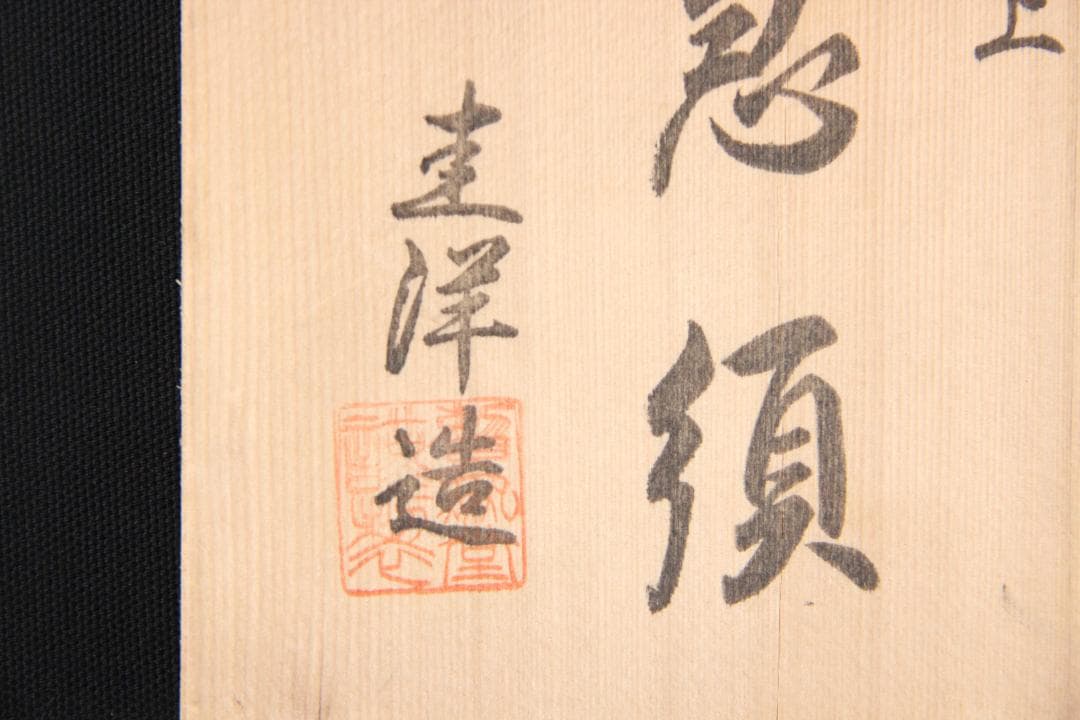 上
急須
圭洋造